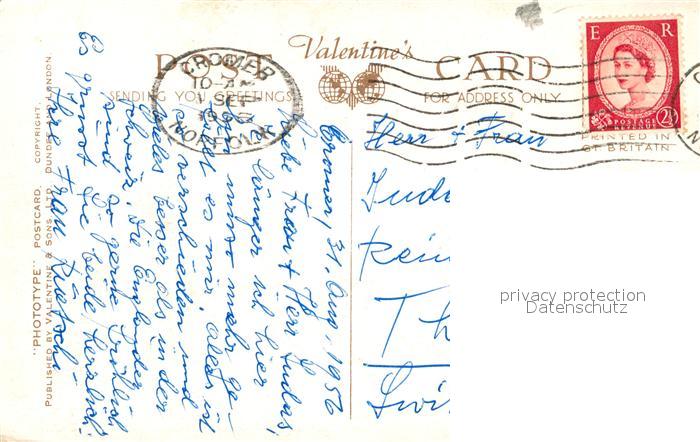 POST
Valentine's
CARD
SENDING YOU GREETINGS
FOR ADDRESS ONLY
CROMER
NORFOLK
E R
POSTAGE
REVENUE
2½
PRINTED IN
GT BRITAIN
"PHOTOTYPE" POSTCARD. COPYRIGHT.
PUBLISHED BY VALENTINE & SONS, LTD. DUNDEE AND LONDON.
Cromer, 31. Aug. 1956
Liebe Frau + Herr Judas,
länger ich hier
bin umso mehr ge-
fällt es mir. Alles ist
so verschieden und
vieles besser als in der
Schweiz. Die Engländer
sind so gerne fröhlich
Es grüsst Sie beide herzlich
Ihre Frau
Herr & Frau
privacy protection
Datenschutz